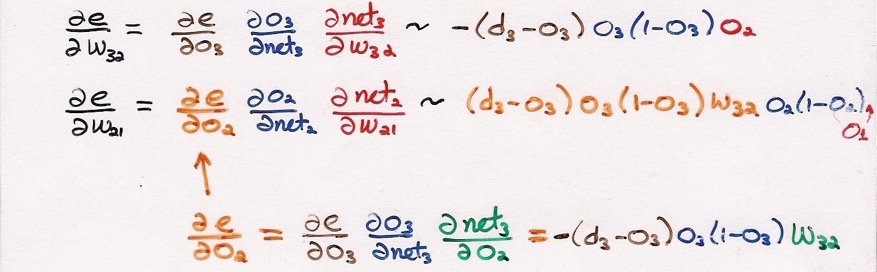 ∂e/∂w₃₂ = ∂e/∂O₃ ∂O₃/∂net₃ ∂net₃/∂w₃₂ ~ -(d₃-O₃) O₃(1-O₃) O₂
∂e/∂w₂₁ = ∂e/∂O₂ ∂O₂/∂net₂ ∂net₂/∂w₂₁ ~ (d₃-O₃) O₃(1-O₃) w₃₂ O₂(1-O₂) O₁
↑
∂e/∂O₂ = ∂e/∂O₃ ∂O₃/∂net₃ ∂net₃/∂O₂ = -(d₃-O₃) O₃(1-O₃) w₃₂